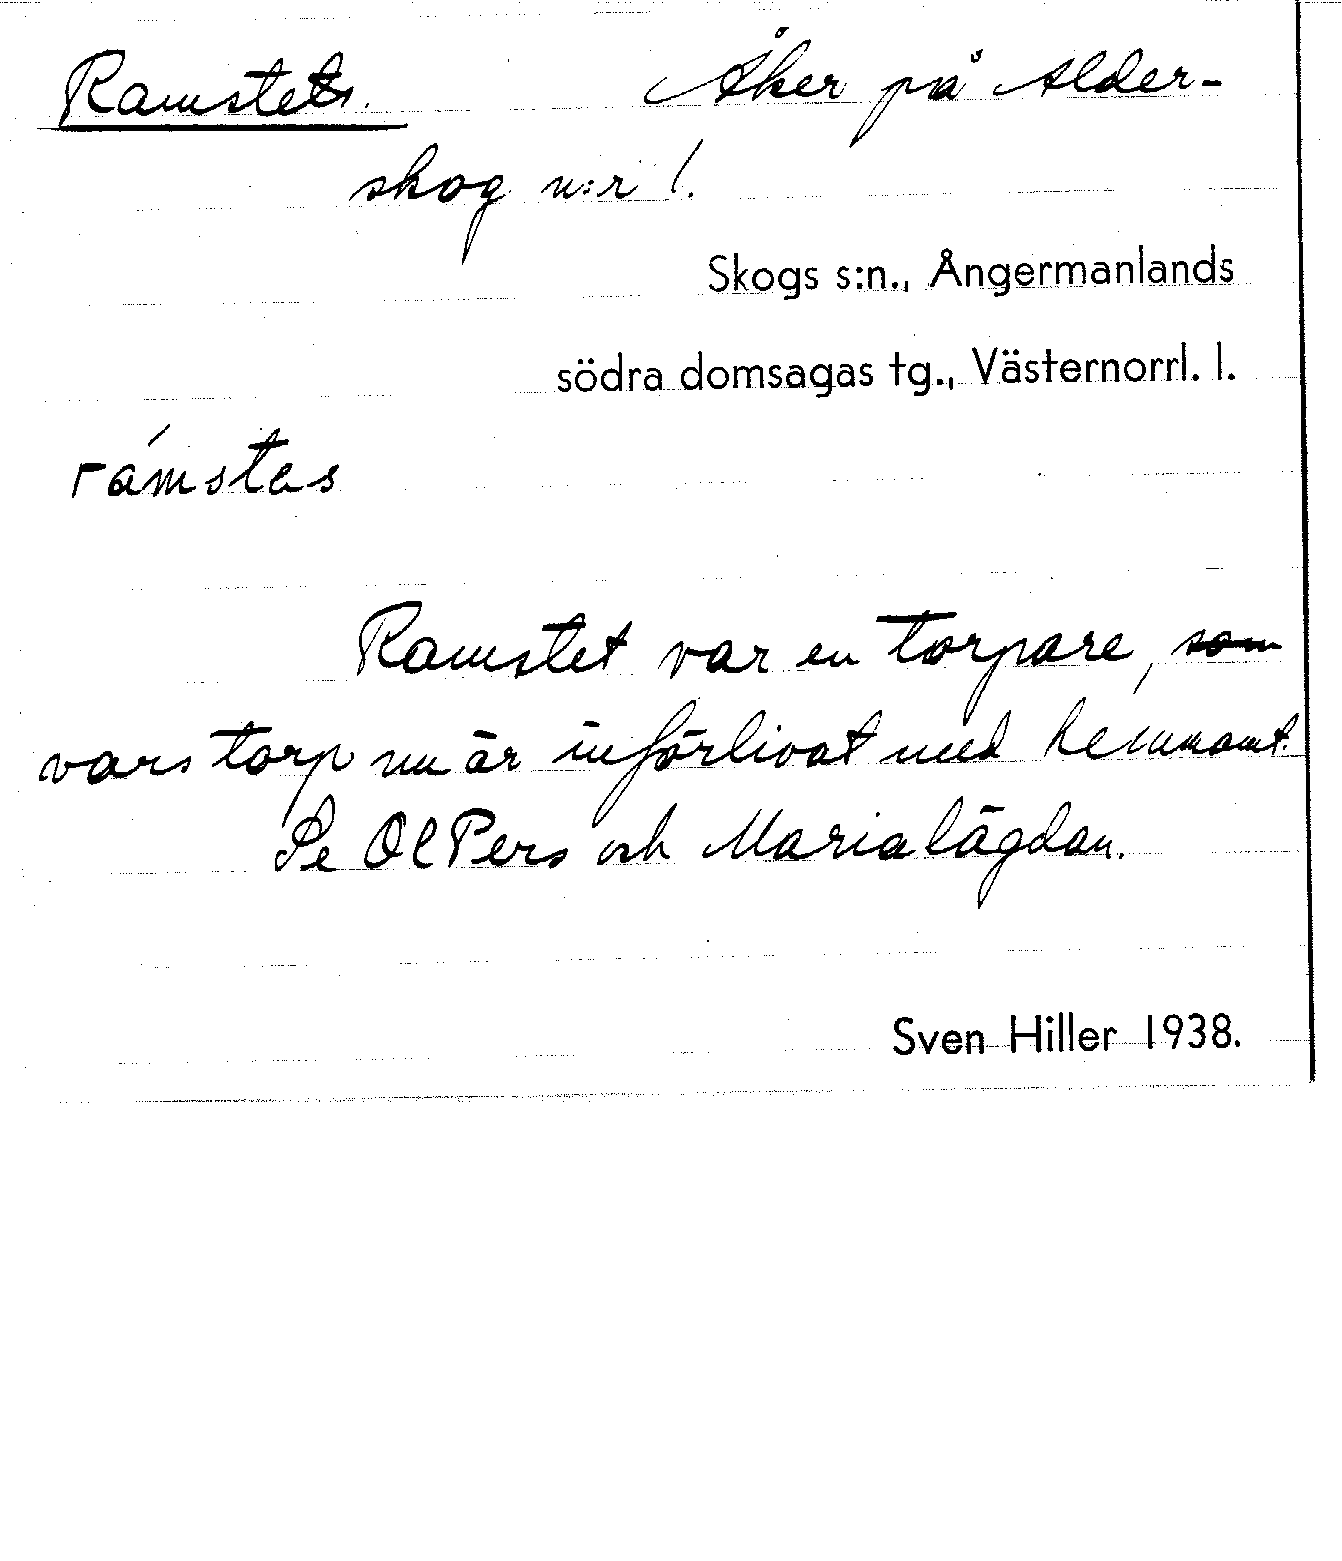 Ramstets. Åker på Alder-
skog n:r 1.
Skogs s:n., Ångermanlands
södra domsagas tg., Västernorrl. l.
rámstes
Ramstet var en torpare, som
vars torp nu är införlivat med hemmant.
Se OlPers och Marialägdan.
Sven Hiller 1938.